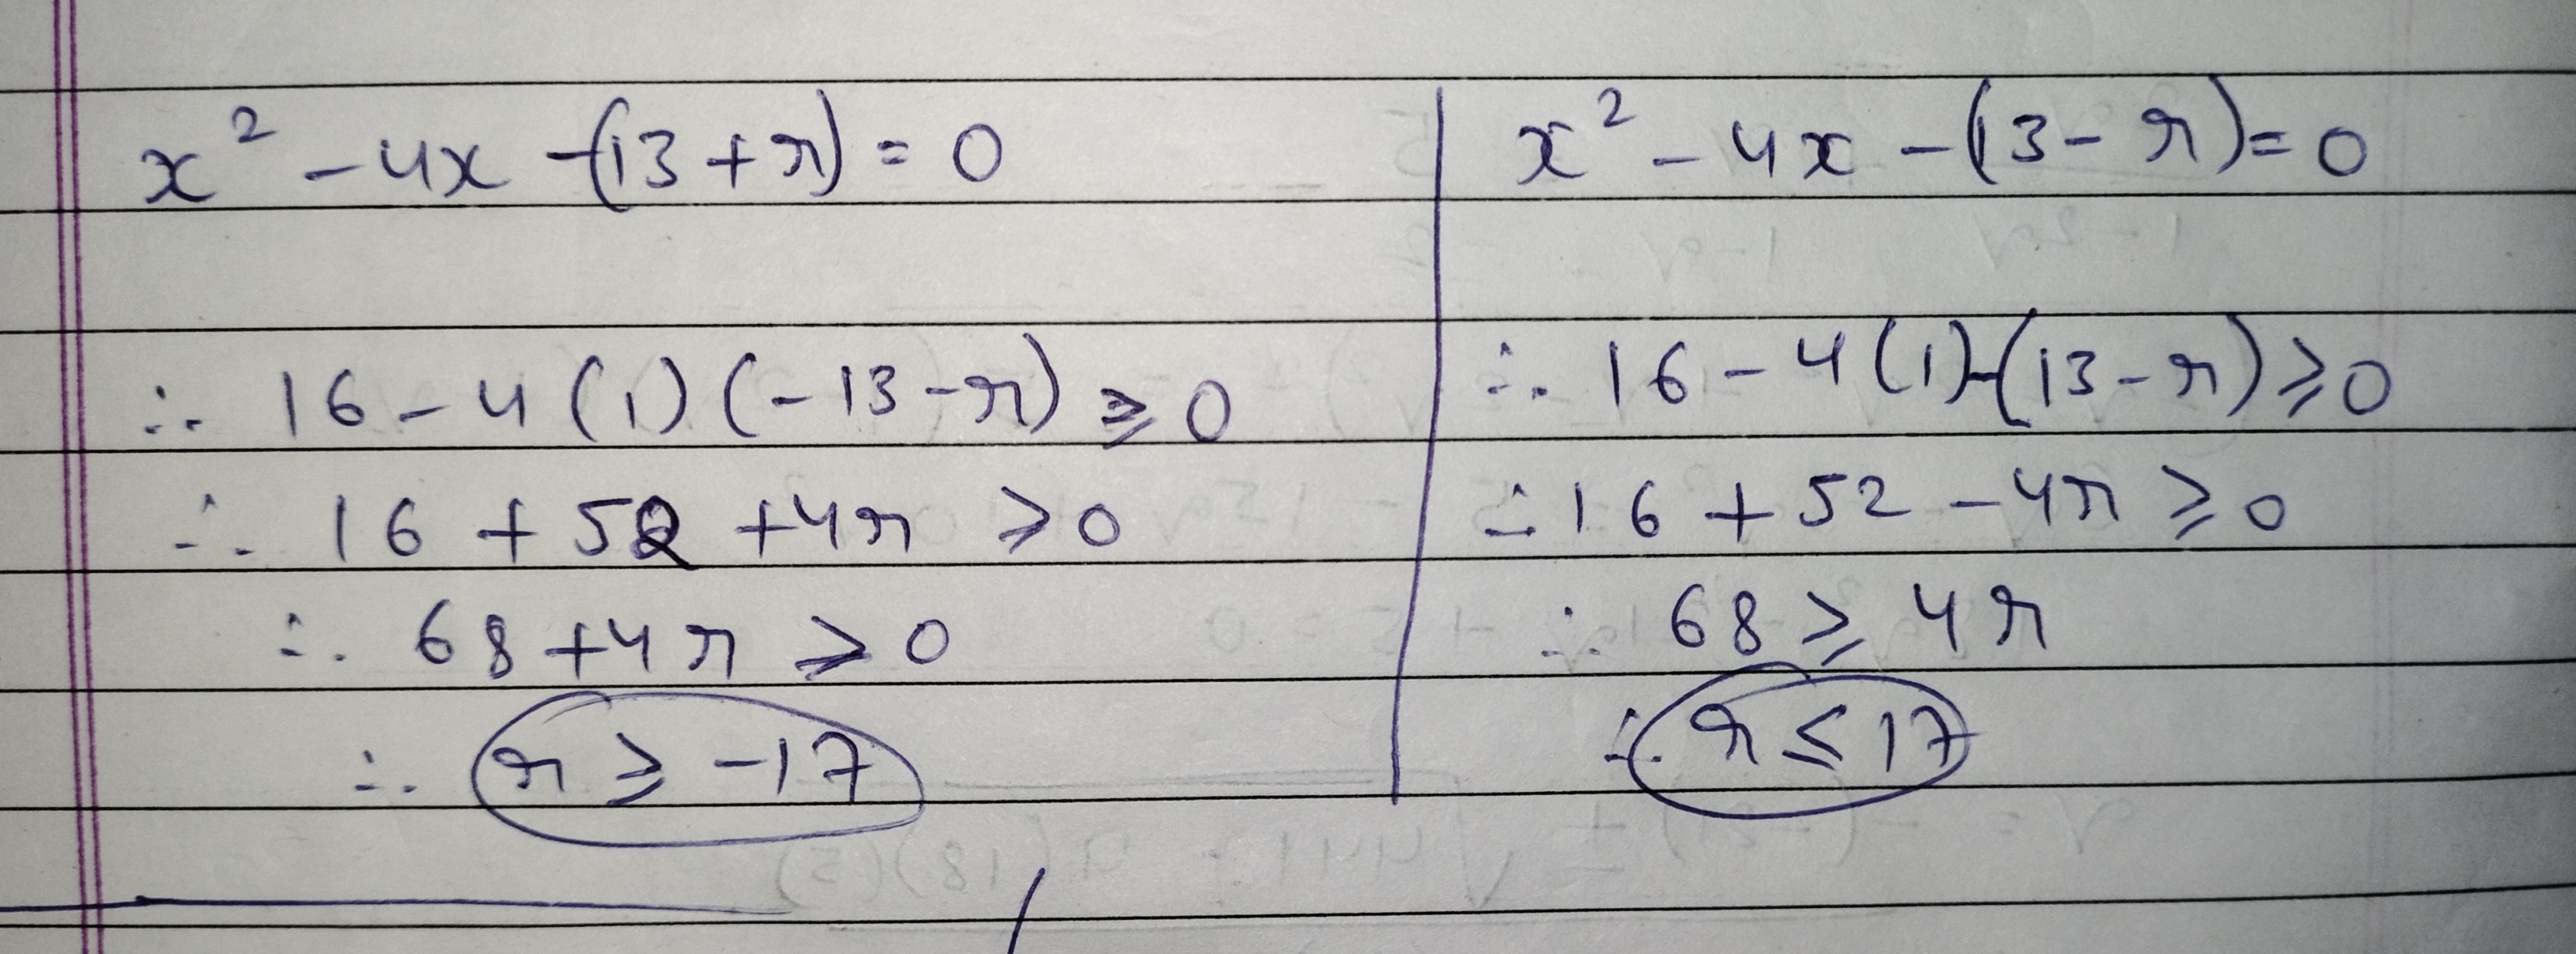 x² - 4x - (13 + r) = 0
∴ 16 - 4(1)(-13 - r) ≥ 0
∴ 16 + 52 + 4r ≥ 0
∴ 68 + 4r ≥ 0
∴ r ≥ -17
x² - 4x - (13 - r) = 0
∴ 16 - 4(1)-(13 - r) ≥ 0
∴ 16 + 52 - 4r ≥ 0
∴ 68 ≥ 4r
∴ r ≤ 17